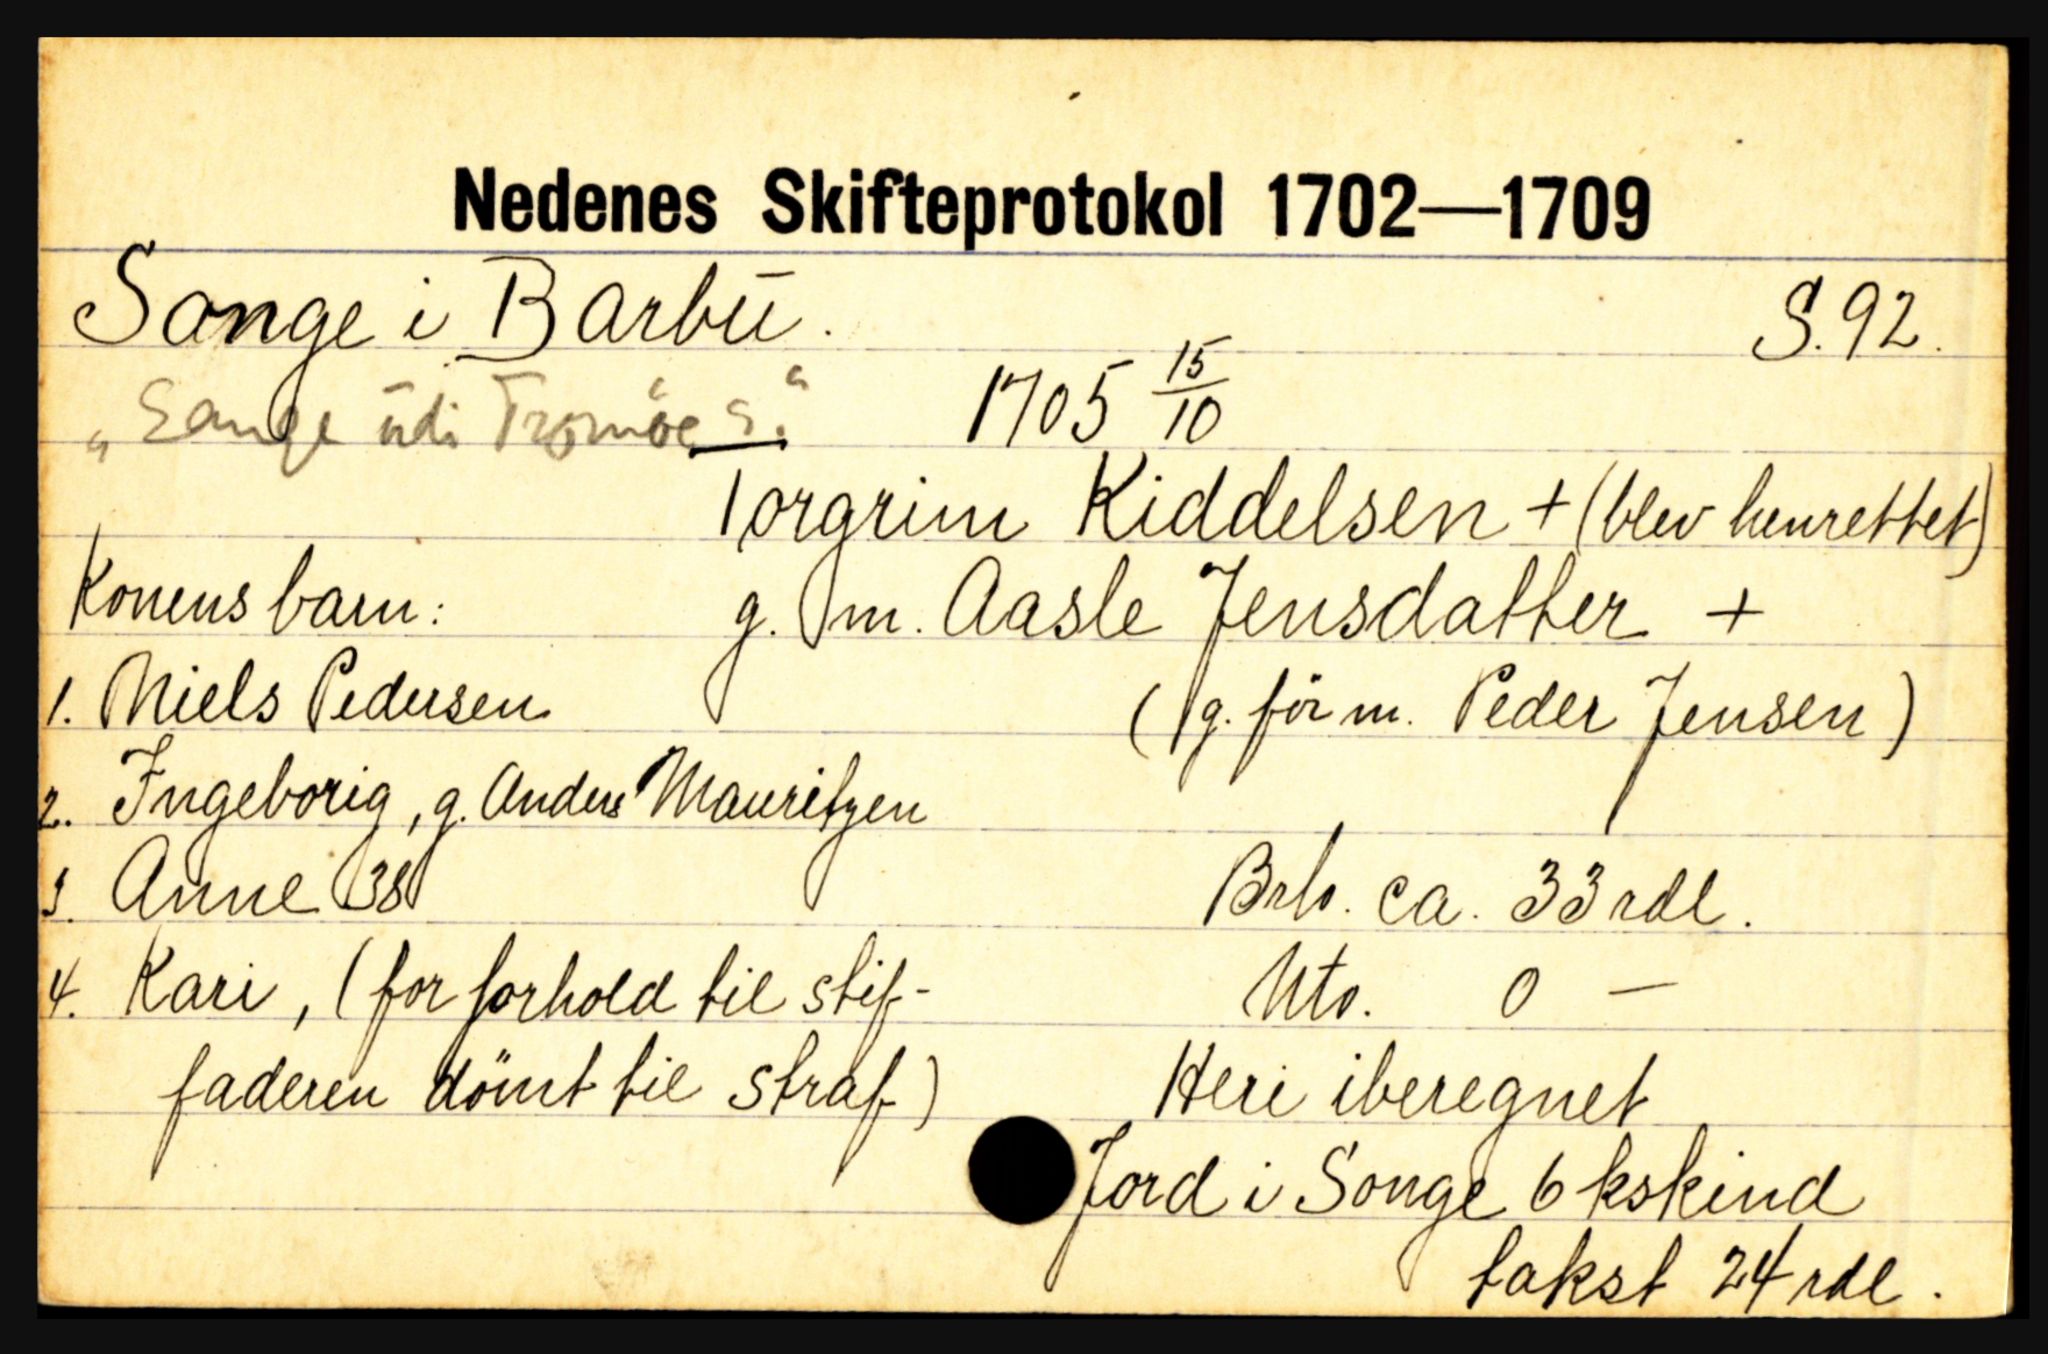 Nedenes Skifteprotokol 1702—1709
Songe i Barbu.
S. 92.
„Sange udi Tromöe S.“
1705 15/10
Torgrim Kiddelsen + (blev henrettet)
Konens barn:
g. m. Aasle Jensdatter +
1. Niels Pedersen
(g. för m. Peder Jensen)
2. Ingeborig, g. Anders Mauritzen
3. Anne 38
Brto. ca. 33 rdl.
4. Kari, (for forhold til stif-
Nto. 0 —
faderen dömt til straf)
Heri iberegnet
Jord i Songe 6 kskind
takst 24 rdl.